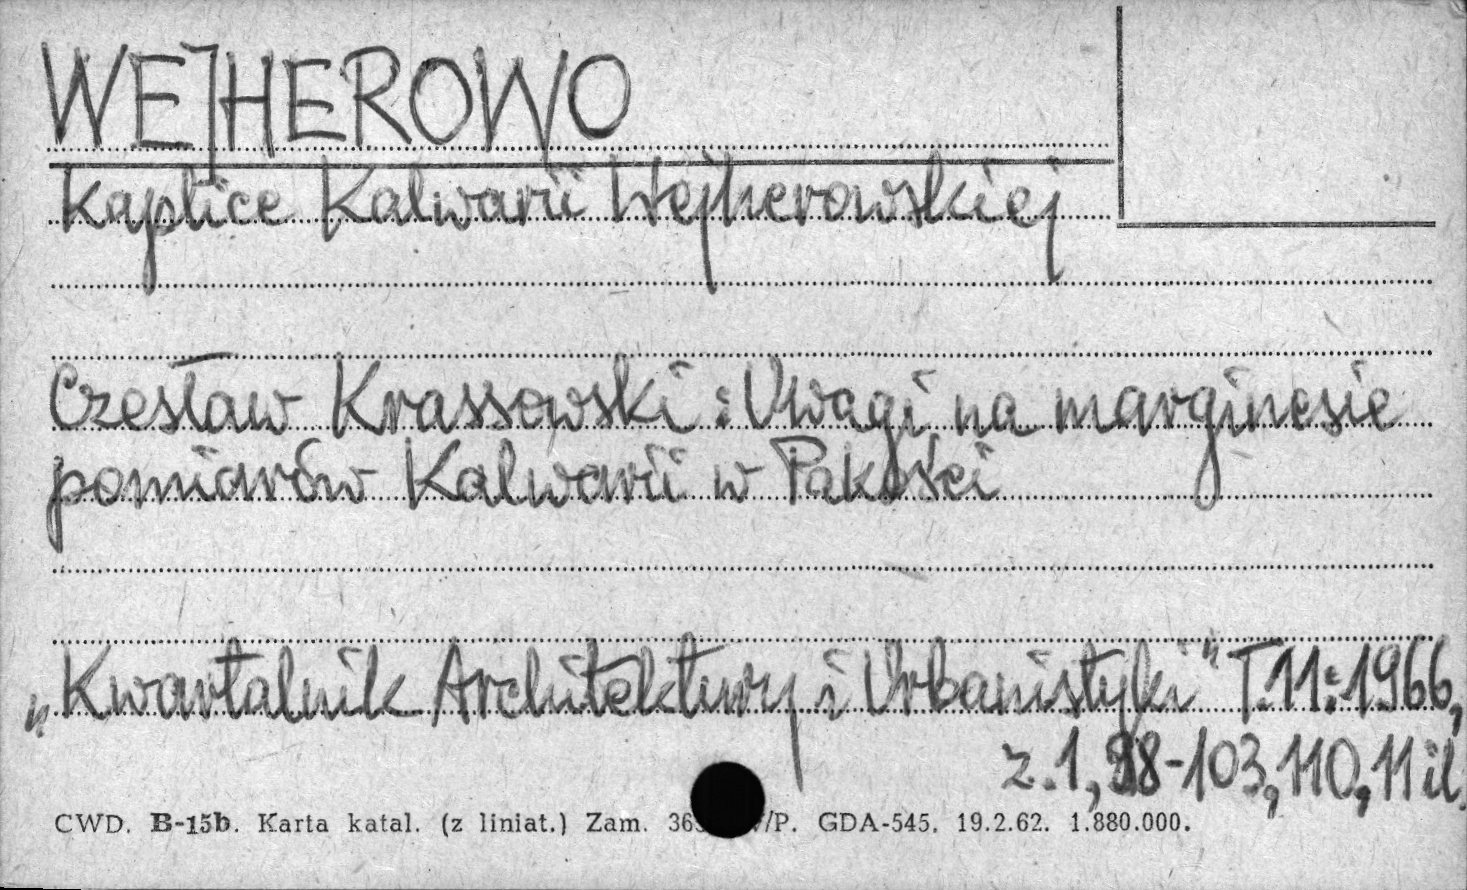 WEJHEROWO
Kaplice Kalwarii Wejherowskiej
Czesław Krassowski : Uwagi na marginesie
pomiarów Kalwarii w Pakości
„Kwartalnik Architektury i Urbanistyki" T.11:1966,
z.1, 98-103, 110, 11 il.
CWD. B-15b. Karta katal. (z liniat.) Zam. /P. GDA-545. 19.2.62. 1.880.000.